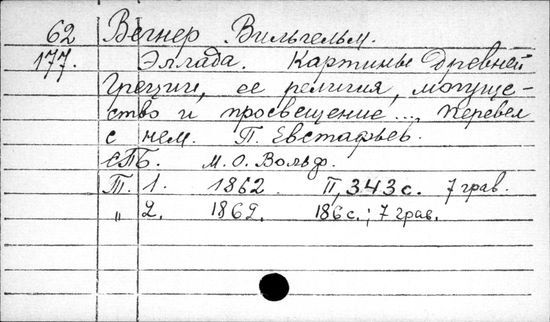 62 Вегнер Вильгельм.
177. Эллада. Картины Древней
Греции, ее религия, могуще-
ство и просвещение..., Перевел
с нем. П. Евстафьев.
СПБ. М. О. Вольф.
Т. 1. 1862. II, 343 с. 7 грав.
" 2. 1862. 186 с.; 7 грав.